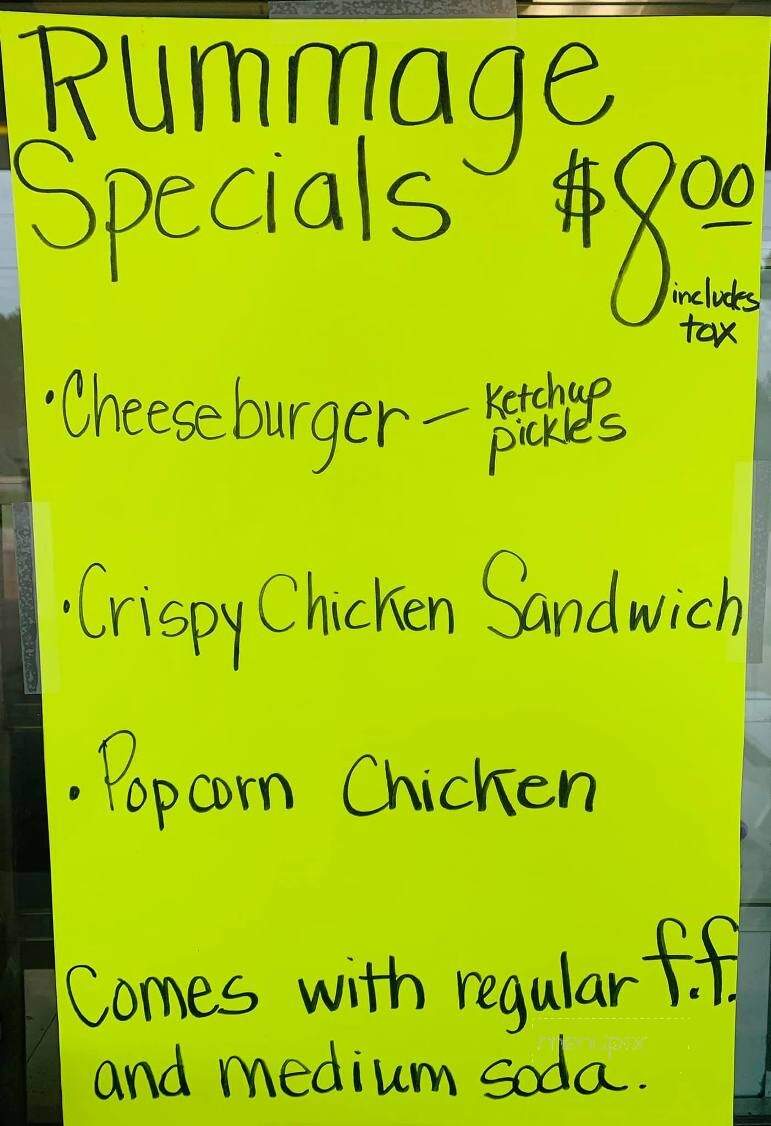 Rummage
Specials $8.00
includes
tax
• Cheeseburger — Ketchup
pickles
• Crispy Chicken Sandwich
• Popcorn Chicken
Comes with regular f.f.
and medium soda.
menupix